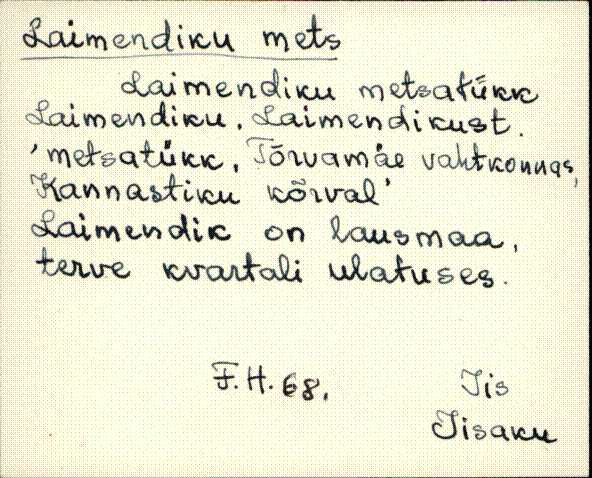 Laimendiku mets
Laimendiku metsatükk
Laimendiku, Laimendikust.
'metsatükk, Tõrvamäe vahtkonnas,
Kannastiku kõrval'
Laimendik on lausmaa,
terve kvartali ulatuses.
F.H. 68.
Iis
Iisaku